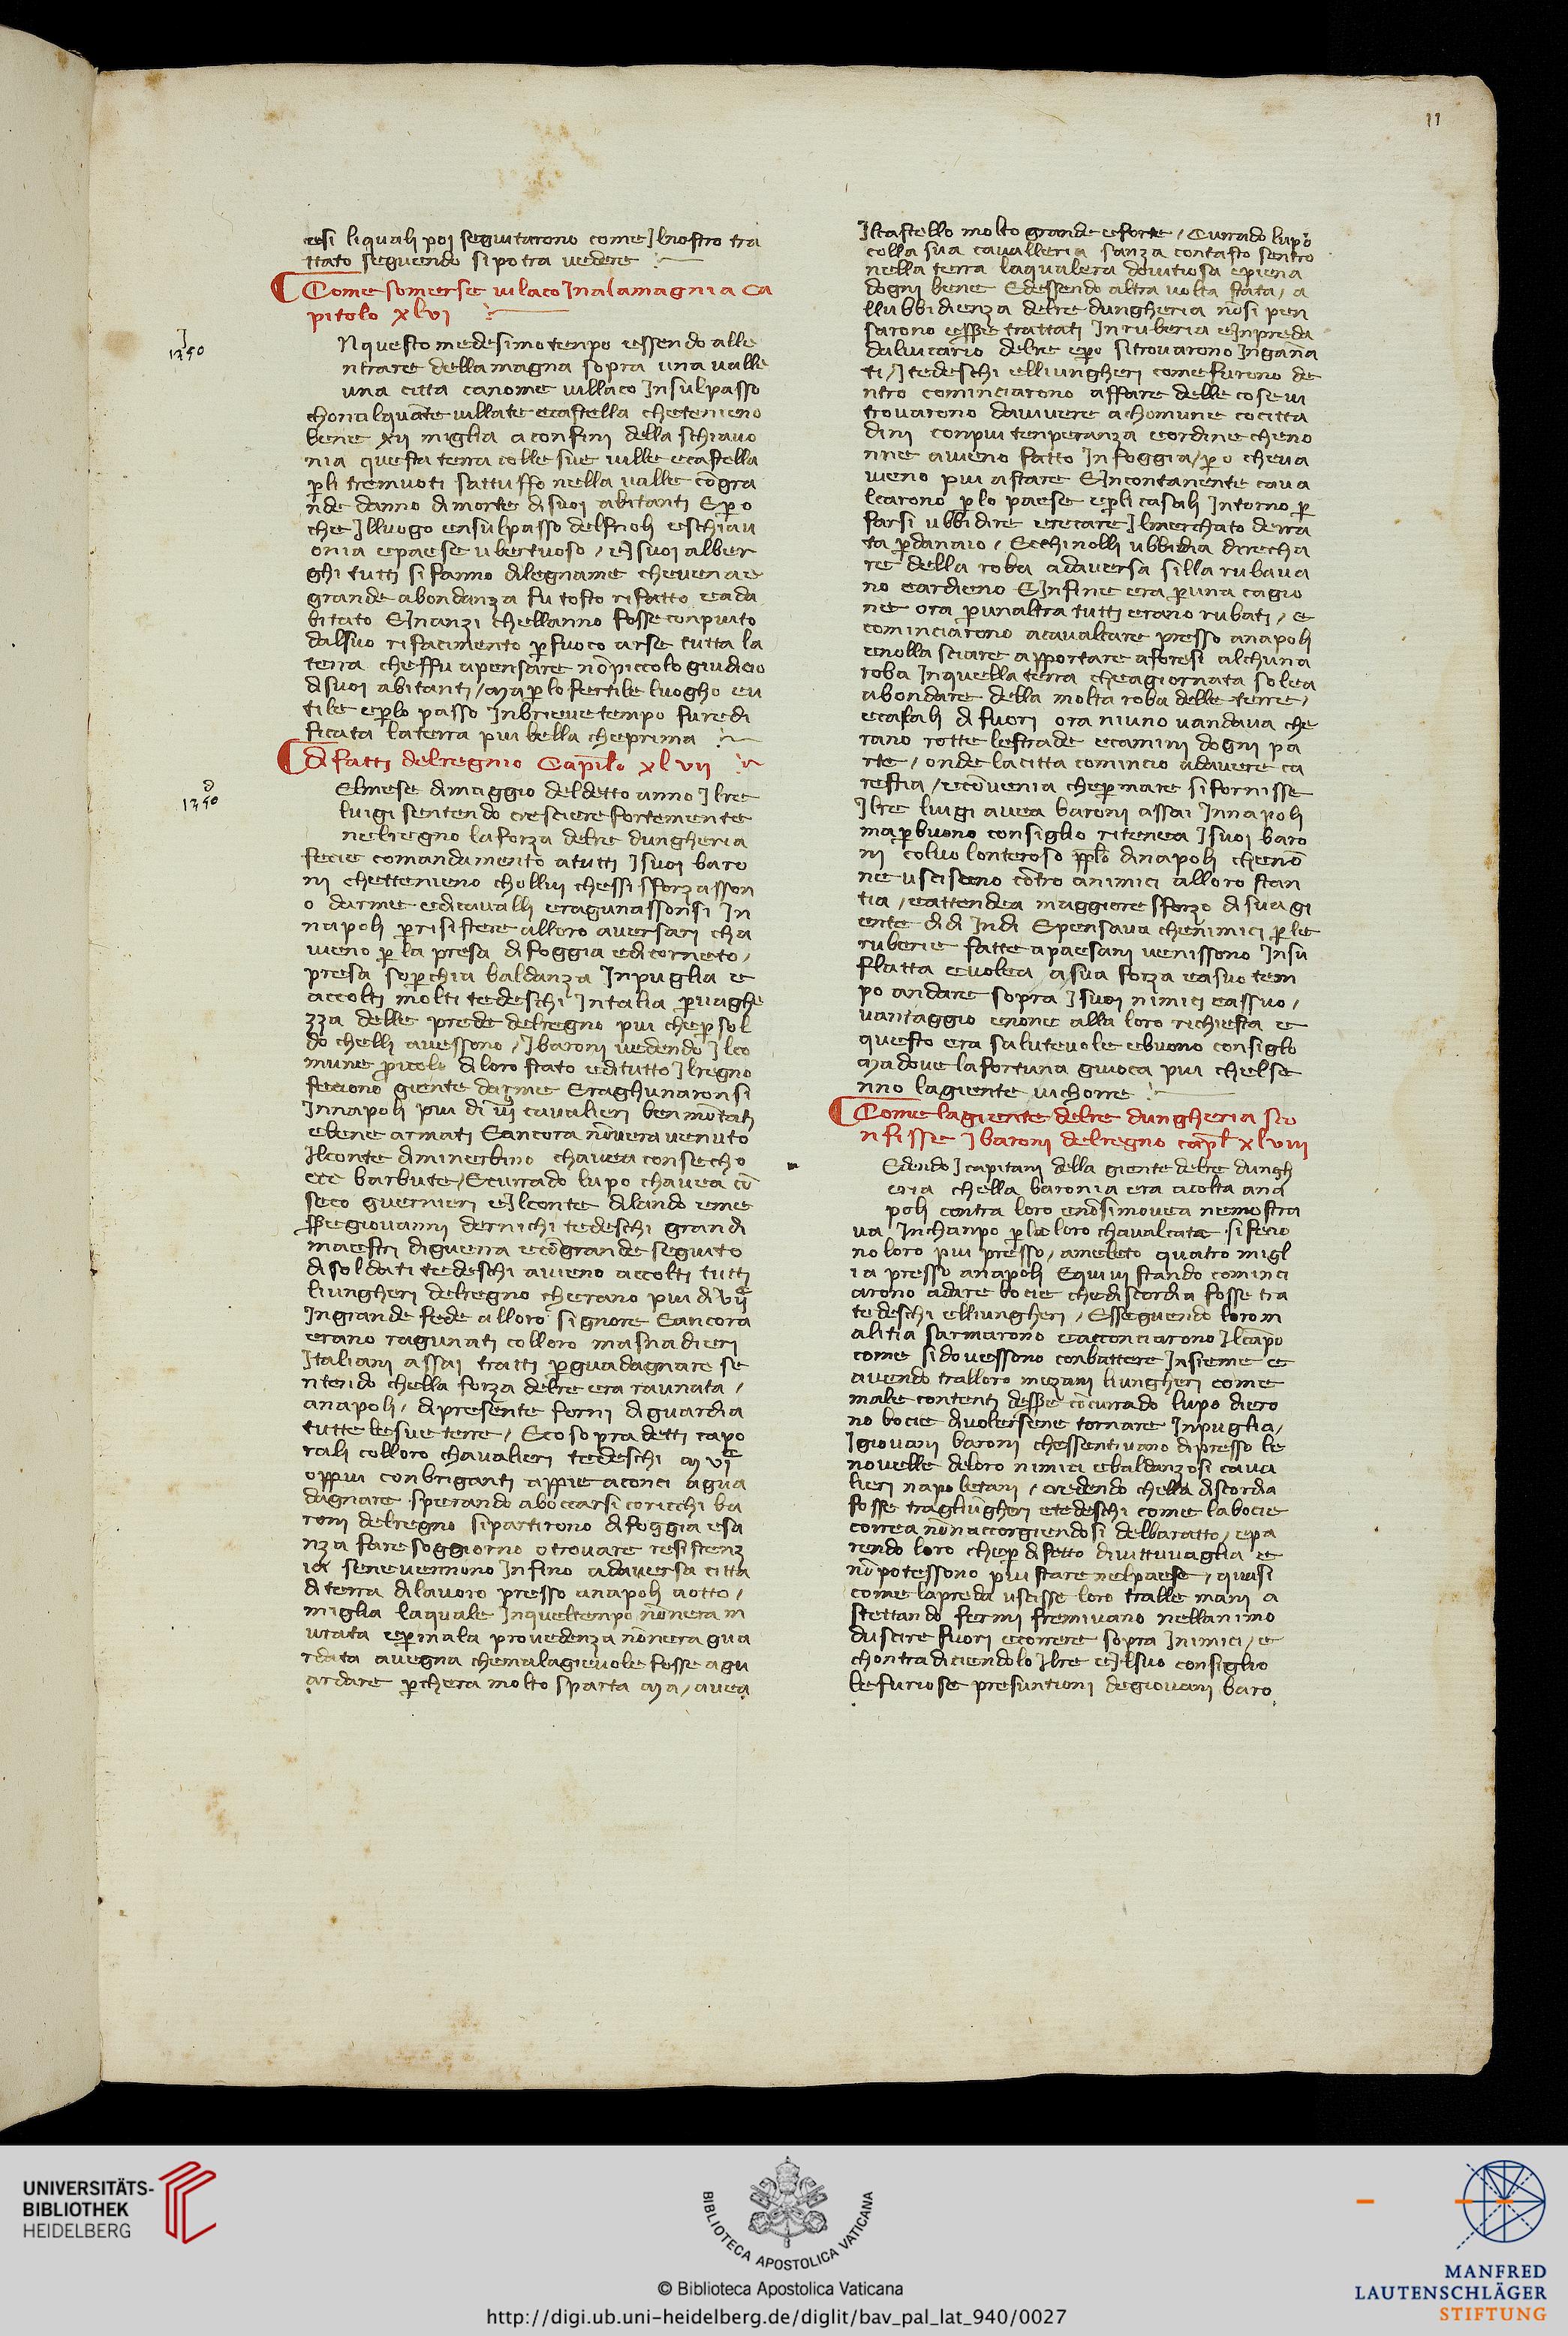 11
esi li quali poi seguitarono come Jlnostro tra
ttato seguendo si potra vedere
Come somerse vilaco Jnalamagnia Ca
pitolo xlvi
J
1350
Nquesto medesimo tempo essendo alle
ntrare dellamagna sopra una valle
una citta canome villaco Jnsulpasso
chon alquāte villate ecastella chetenieno
bene xii miglia aconfini della schiavo
nia questa terra colle sue ville ecastella
pli tremuoti sattuffo nella valle cōgra
nde danno di morte di suoi abitanti Epo
che Jlluogo ensulpasso delfrioli eschiav
onia epaese ubertuoso / eJ suoi alber
ghi tutti si fanno dilegname chevenae
grande abondanza fu tosto rifatto eada
bitato EJnanzi chellanno fosse conpiuto
dalsuo rifacimento pfuoco arse tutta la
terra cheffu apensare nō piccolo giudicio
di suoi abitanti / ma plo fertile luogho eu
tile eplo passo Jnbrieve tempo furedi
ficata laterra piu bella cheprima
di fatti delregnio Capitolo xlvii
d
1350
Elmese dimaggio deldetto anno Jlre
luigi sentendo cresciere fortemente
nelregno laforza delre dungheria
fecie comandamento atutti Jsuoi baro
ni chettenieno chollui chessi sforzasson
o darme edicavalli eragunassonsi Jn
napoli prisistere alloro aversari cha
vieno p la presa di foggia edicorneto /
presa sopchia baldanza Jnpuglia e
accolti molti tedeschi Jntalia pvaghe
zza delle prede delregno piu chepsol
do chelli avessono / Jbaroni vedendo Jlco
mune picolo di loro stato editutto Jlregno
feciono giente darme Eraghunaronsi
Jnnapoli piu di iiij cavalieri ben mōtati
ebene armati Eancora nōvera venuto
Jlconte diminerbino chavea consecho
ccc barbute / Ecurrado lupo chavea cō
seco guernieri eJlconte dilando eme
sse giovanni dernichi tedeschi grandi
maestri diguerra ecōgrande seguito
di soldati tedeschi avieno accolti tutti
liungheri delregno cherano piu di vij
Jngrande fede alloro signore Eancora
erano ragunati colloro masnadieri
Jtaliani assai tratti pguadagnare se
ntendo chella forza delre era raunata /
anapoli / dipresente forni diguardia
tutte lesue terre / Eco sopradetti capo
rali colloro chavalieri tedeschi m vj
oppiu conbriganti appie aconci agua
dagnare sperando aboccarsi coricchi ba
roni delregno sipartirono di foggia esa
nza fare soggiorno otrovare resistenz
ia senevennono Jnfino adaversa citta
di terra dilavoro presso anapoli aotto /
miglia laquale Jnqueltempo nōnera m
urata epmala provedenza nōnera gua
rdata avegna chemalagievole fosse agu
ardare pchera molto sparta ma / avea
Jlcastello molto grande eforte / Currado lupo
colla sua cavalleria sanza contasto sentro
nella terra laqualera dovitiosa epiena
dogni bene Edessendo altra volta stata / a
llubbidienza delre dungheria nōsi pen
sarono essere trattati Jnruberia eJnpreda
dalvicario delre epo sitrovarono Jngāna
ti / Jtedeschi elliungheri come furono de
ntro cominciarono affare delle cose vi
trovarono davivere achomune cocitta
dini conpiu tenperanza eordine cheno
nne avieno fatto Jnfoggia / po cheva
vieno piu astare EJncontanente cava
lcarono plo paese epli casali Jntorno p
farsi ubbidire erecare Jlmerchato derra
ta pdanaio / Ecchinolli ubbidia direcha
re della roba adaversa silla rubava
no eardieno EJnfine era puna cagio
ne ora punaltra tutti erano rubati / e
cominciarono acavalcare presso anapoli
enolla sciare apportare aforesi alchuna
roba Jnquella terra cheagiornata solea
abondare della molta roba delle terre /
ecasali di fuori ora niuno vandava che
rano rotte lestrade ecamini dogni pa
rte / onde lacitta comincio adavere ca
restia / ecōvenia chepmare sifornisse
Jlre luigi avea baroni assai Jnnapoli
mapbuono consiglio ritenea Jsuoi baro
ni colvolonteroso pplo dinapoli chenō
ne uscissono cōtro animici alloro stan
tia / eattendea maggiore sforzo disuagi
ente didi Jndi Epensava chenimici ple
ruberie fatte apaesani venissono Jnsu
flatta evolea asua forza easuo tem
po andare sopra Jsuoi nimici eassuo /
vantaggio enone alla loro richiesta e
questo era salutevole ebuono consiglo
ma dove lafortuna giuoca piu chelse
nno lagiente vichorre
Come lagiente delre dungheria sco
nfisse Jbaroni delregno capl xlviii
Edendo Jcapitani della giente delre dungh
eria chella baronia era acolta ana
poli contra loro enōsimovea nemostra
va Jnchanpo ple loro chavalcate sifecio
no loro piu presso / ameleto quatro migl
ia presso anapoli Equivi stando cominci
arono adare bocie chediscordia fosse tra
tedeschi elliungheri / Esseguendo lorom
alitia sarmarono eacconciarono Jlcāpo
come sidovessono conbattere Jnsieme e
avendo tralloro mezani liungheri come
male contenti desse cōcurrado lupo diero
no bocie divolersene tornare Jnpuglia /
Jgiovani baroni chessentivano dipresso le
novelle deloro nimici ebaldanzosi cava
lieri napoletani / credendo chella discordia
fosse tragliungheri etedeschi come labocie
correa nōnaccorgiendosi delbaratto / epa
rendo loro chep difetto divittuvaglia e
nō potessono piu stare nelpaese / quasi
come lapreda uscisse loro tralle mani a
stettando fermi fremivano nellanimo
duscire fuori ecorrere sopra Jnimici / e
chontradiciendolo Jlre eJlsuo consiglio
lefuriose presuntioni degiovani baro
UNIVERSITÄTS-
BIBLIOTHEK
HEIDELBERG
BIBLIOTECA APOSTOLICA VATICANA
© Biblioteca Apostolica Vaticana
http://digi.ub.uni-heidelberg.de/diglit/bav_pal_lat_940/0027
MANFRED
LAUTENSCHLÄGER
STIFTUNG